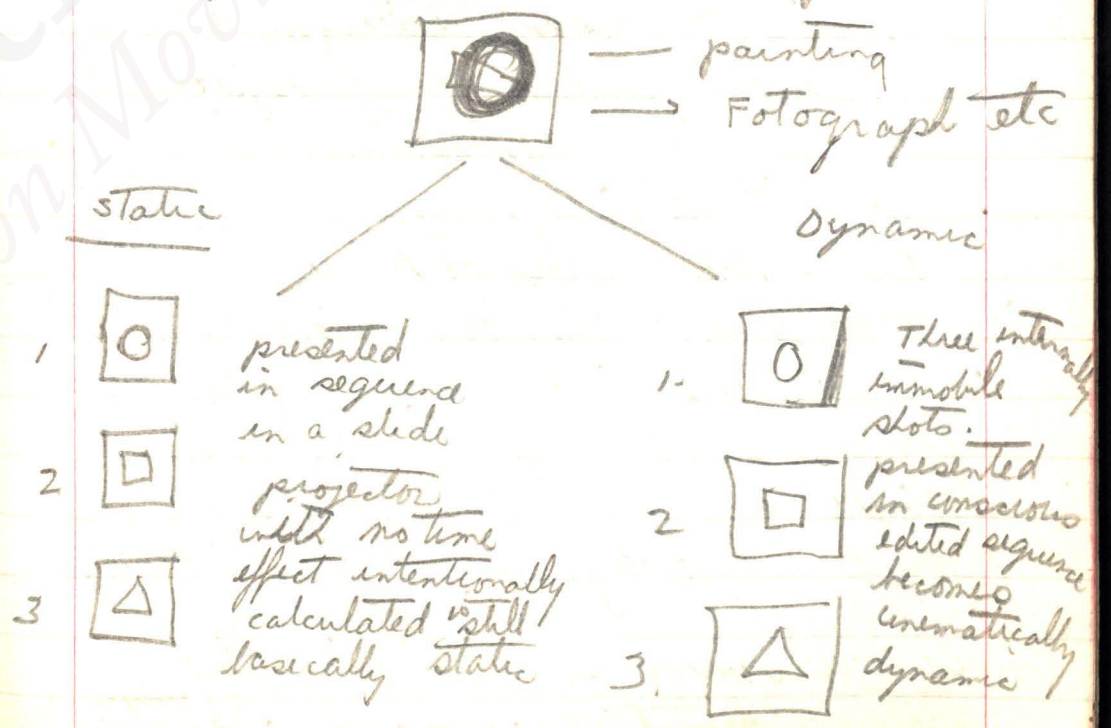 painting
Fotograph etc
static
Dynamic
1
presented
in sequence
in a slide
2
projector
with no time
effect intentionally
3
calculated is still
basically static
1.
Three internally
immobile
shots.
presented
2
in conscious
edited sequence
becomes
cinematically
3.
dynamic